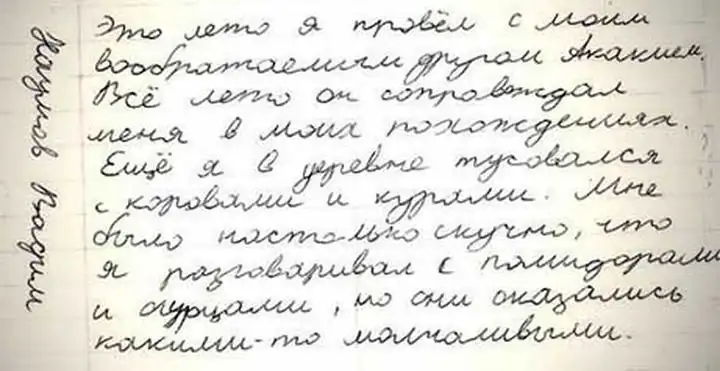 Это лето я провёл с моим
вообратаемым другом Акакием.
Всё лето он сопровождал
меня в моих похождениях.
Ещё я в деревне тусовался
с коровами и курями. Мне
было настолько скучно, что
я разговаривал с помидорами
и огурцами, но они оказались
какими-то молчаливыми.
Наумов Вадим